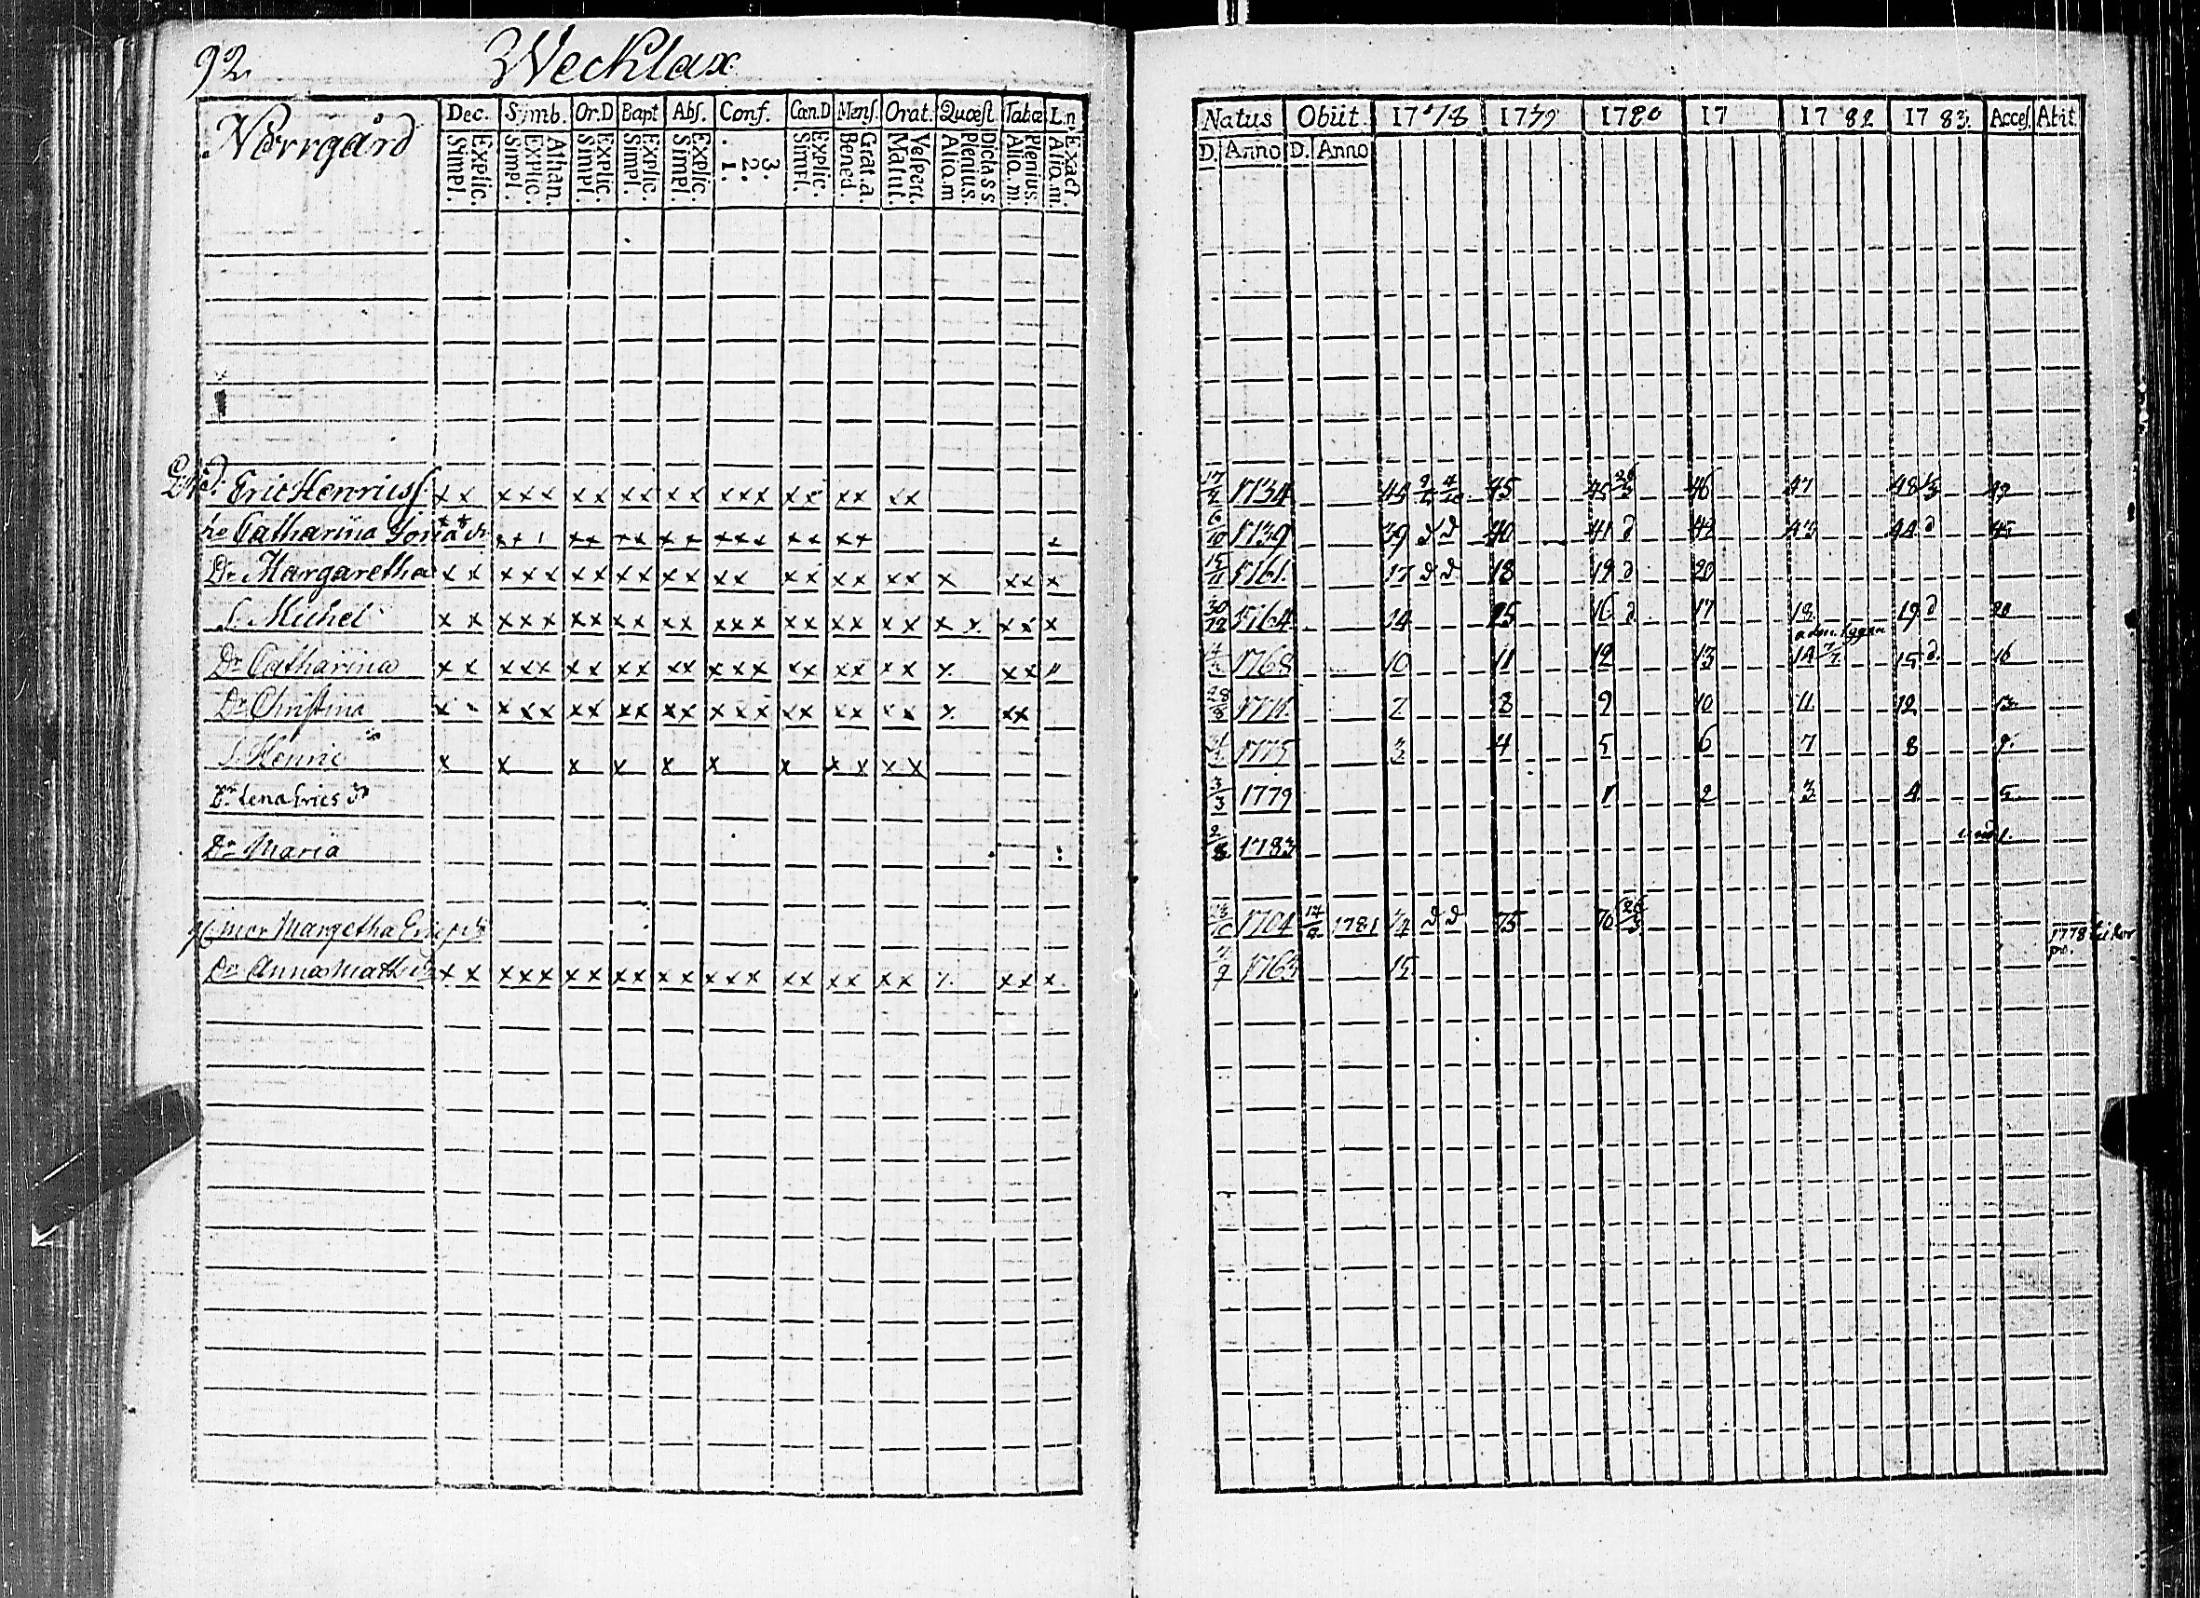 92. Wecklax
Norrgård Dec. Symb. Or.D Bapt Abs. Conf. Cœn.D Mens. Orat. Quœst Tabœ L.n.
Explic. Simpl. Athan. Explic. Simpl. Explic. Simpl. Explic. Simpl. Explic. Simpl. 3. 2. 1. Explic. Simpl. Grat.a. Bened. Vespert. Matut. Dictass. Plenius. Alio.m Plenius. Alio.m. Exact. Alio.m.
Natus Obiit. 1778 1779 1780 17 1782 1783. Acces. Abit.
D. Anno D. Anno
Eric Henricss. x x x x x x x x x x x x x x x x x x x x 17 1734 45 46 47 48 49
Catharina x x x x x x x x x x x x x x 6/10 1739 39 d d 40 41 d 42 43 44 d 45
Dr. Margaretha x x x x x x x x x x x x x x x x x x x x x x x 15/11 1761. 17 d d 18 19 d 20
S. Michel x x x x x x x x x x x x x x x x x x x x x x x x x 30/12 1764 14 15 16 d 17 18 19 d 20
Dr. Catharina x x x x x x x x x x x x x x x x x x x x x x 1768 10 11 12 13 14 15 d. 16
Dr. Christina x x x x x x x x x x x x x x x x x x x x x x 28/8 1771. 7 8 9 10 11 12 13
S. Henric x x x x x x x x x x x 1775 3 4 5 6 7 8 9.
Dr. Lena Erics dr 3/3 1779 1 2 3 4 5
Dr. Maria 2/8 1783 1.
Margetha 1704 1781 74 d d 75 76 26/3
Dr. Anna Math. dr x x x x x x x x x x x x x x x x x x x x x x x 1763 15 1778